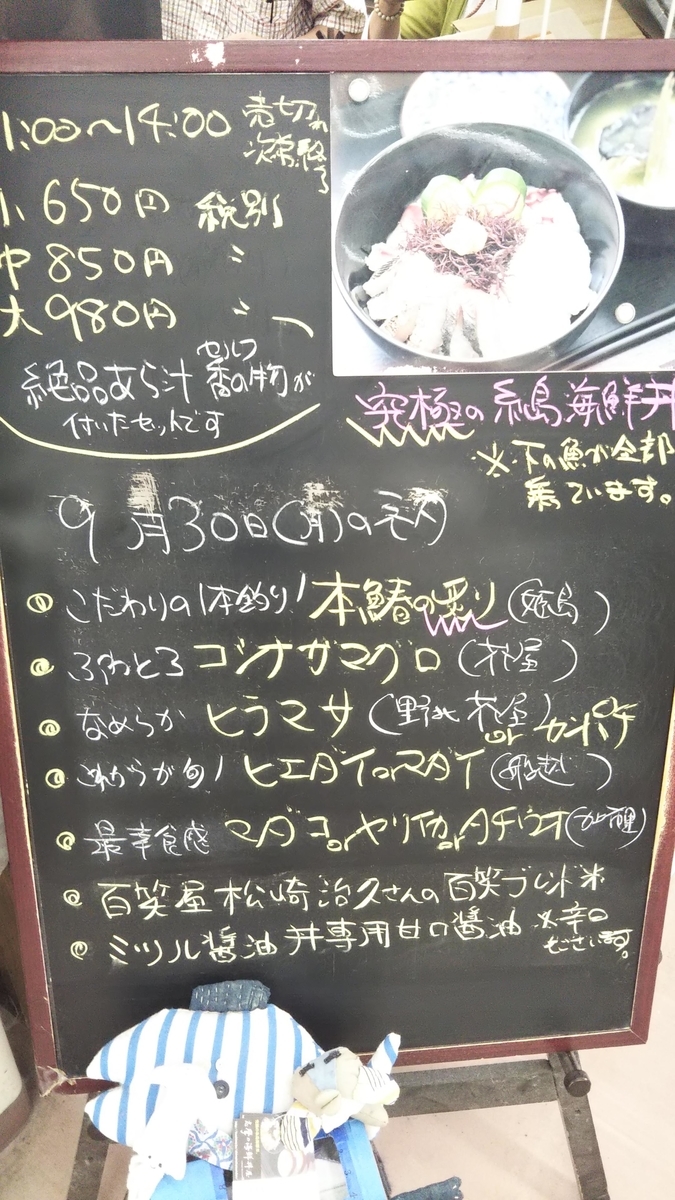 1:00〜14:00 売切れ次第終了
小 650円 税別
中 850円 〃
大 980円 〃
絶品あら汁 セルフ香の物が
付いたセットです
究極の糸島海鮮丼
※下の魚が全部
乗ています。
9月30日(月)の
こだわりの1本釣り! 本鰆の炙り (姫島)
ふわとろ コシナガマグロ (芥屋)
なめらか ヒラマサ (野北 芥屋) or カンパチ
これからが旬! ヒエダイorマダイ (船越)
最幸食感 マダコorヤリイカorタチウオ (加布里)
百笑屋 松崎治久さんの百笑ブレンド米
ミツル醤油 丼専用甘口醤油 ※辛口もございます。